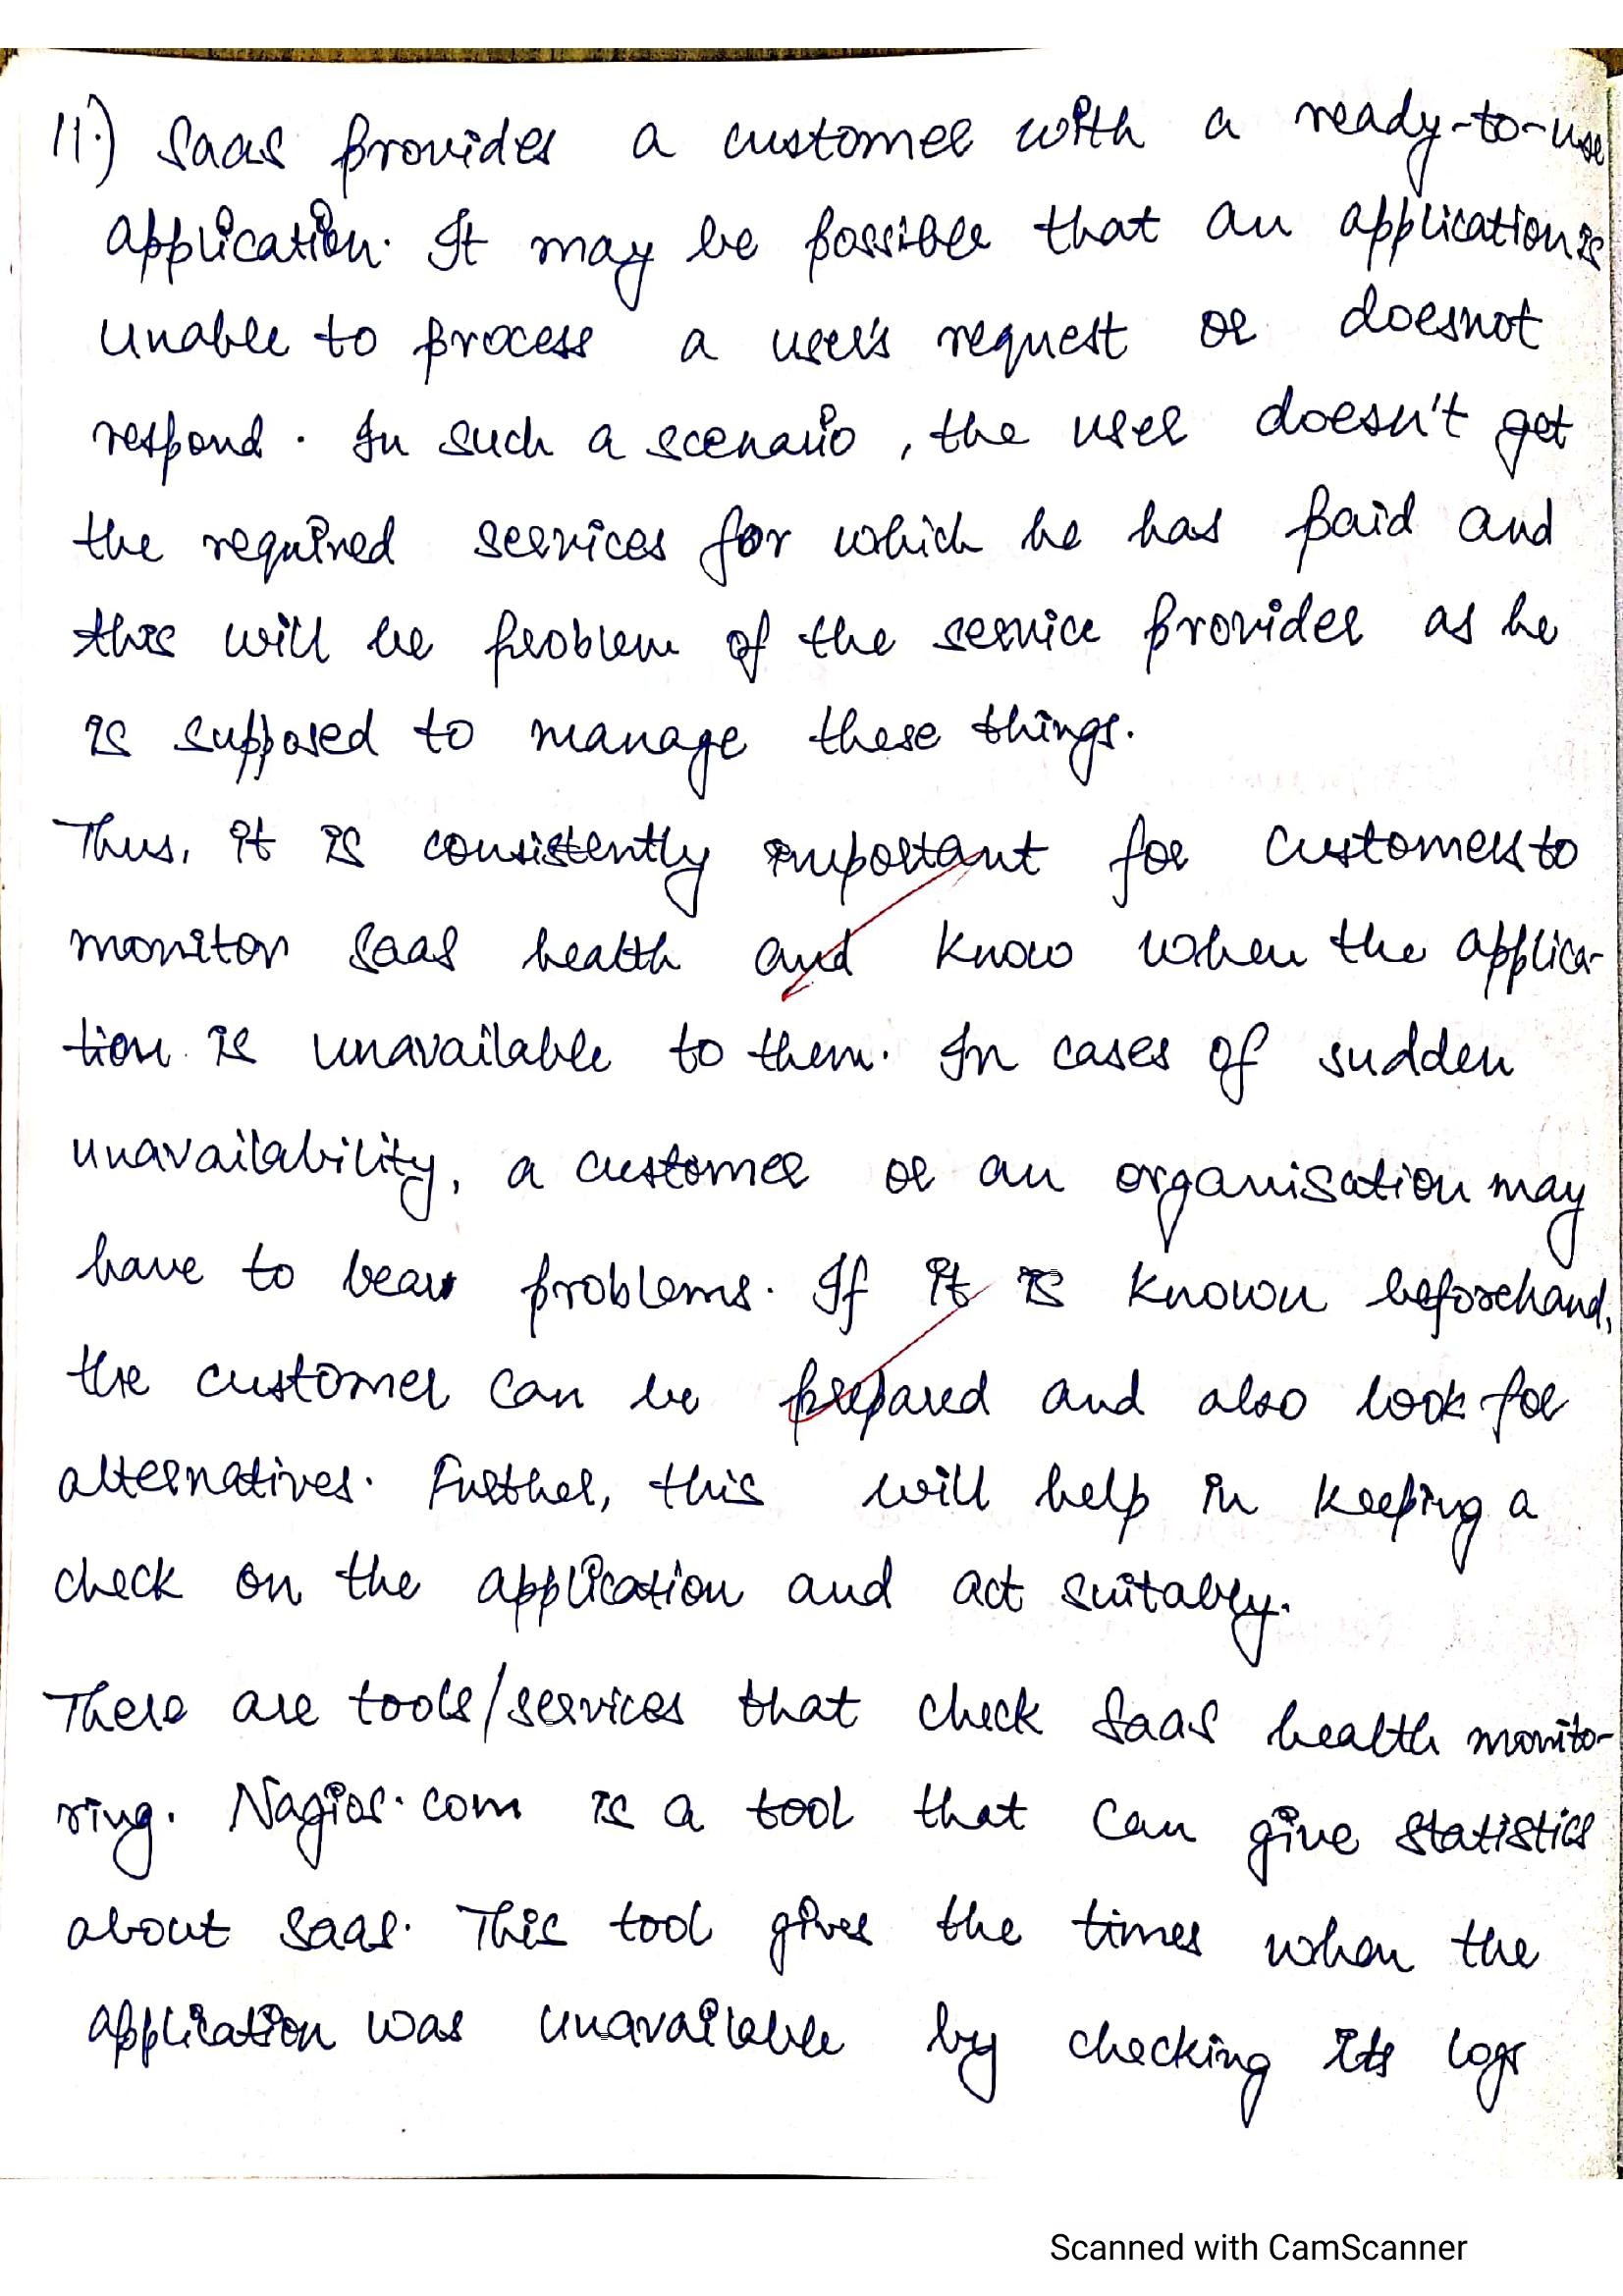 11.) SaaS provides a customer with a ready-to-use
application. It may be possible that an application is
unable to process a user's request or doesnot
respond. In such a scenario, the user doesn't get
the required services for which he has paid and
this will be problem of the service provider as he
is supposed to manage these things.
Thus, it is consistently important for customers to
monitor SaaS health and know when the applica-
tion is unavailable to them. In cases of sudden
unavailability, a customer or an organisation may
have to bear problems. If it is known beforehand,
the customer can be prepared and also look for
alternatives. Further, this will help in keeping a
check on the application and act suitably.
There are tools/services that check SaaS health monito-
ring. Nagios.com is a tool that can give statistics
about SaaS. This tool gives the times when the
application was unavailable by checking its logs
Scanned with CamScanner